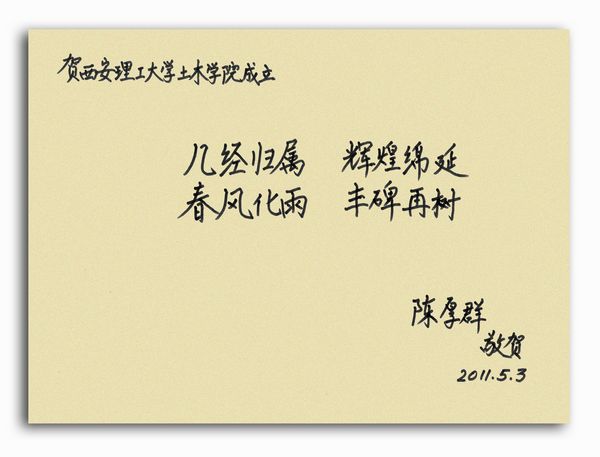 贺西安理工大学土木学院成立
几经归属 辉煌绵延
春风化雨 丰碑再树
陈厚群
敬贺
2011.5.3